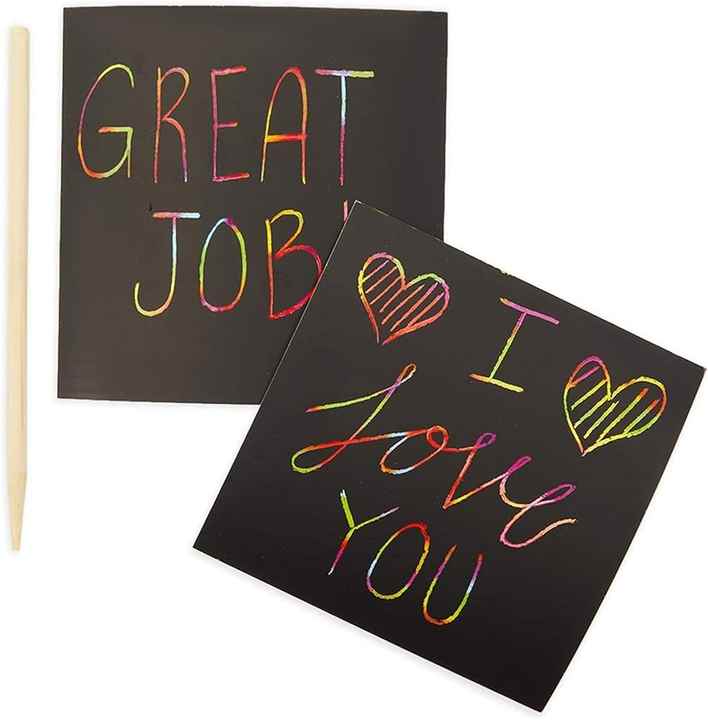 GREAT
JOB!
I
Love
YOU